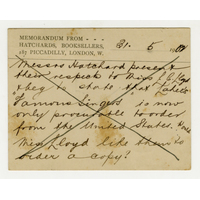 MEMORANDUM FROM
HATCHARDS, BOOKSELLERS,
187 PICCADILLY, LONDON, W.
21. 5
Messrs Hatchard present
their respects to Miss Lloyd
& beg to state that
Famous Singers" is now
only procurable to order
from the United States.
Miss Lloyd like them to
order a copy?